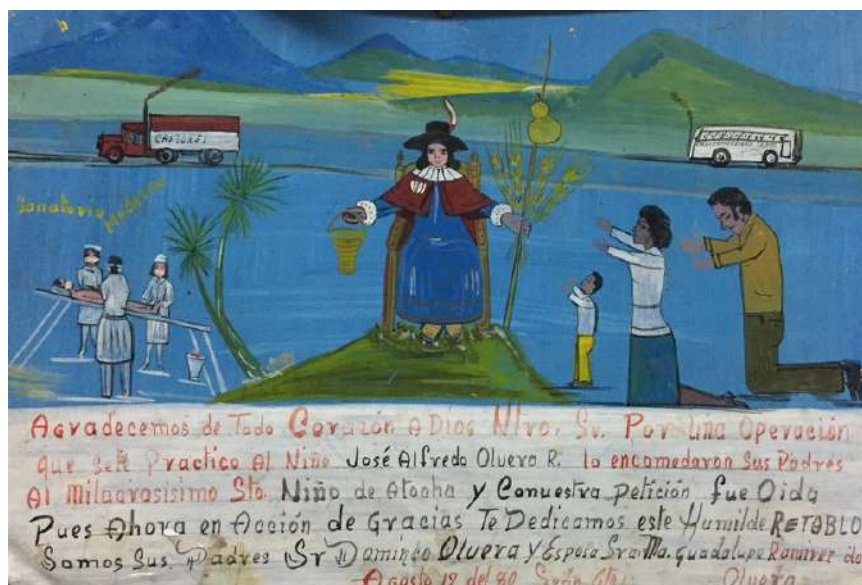 CASTORES
Sanatorio Moderno
Agradecemos de Todo Corazón A Dios Ntro. Sr. Por Una Operación
que se le Practico Al Niño José Alfredo Oluera R. lo encomedaron Sus Padres
Al Milagrosisimo Sto. Niño de Atocha y Conuestra Petición fue Oida
Pues Ahora en Acción de Gracias Te Dedicamos este Humilde RETABLO
Somos Sus Padres Sr Domingo Oluera y Esposa Sra. Ma. Guadalupe Ramirez de
Agosto 12 del 80 Oluera